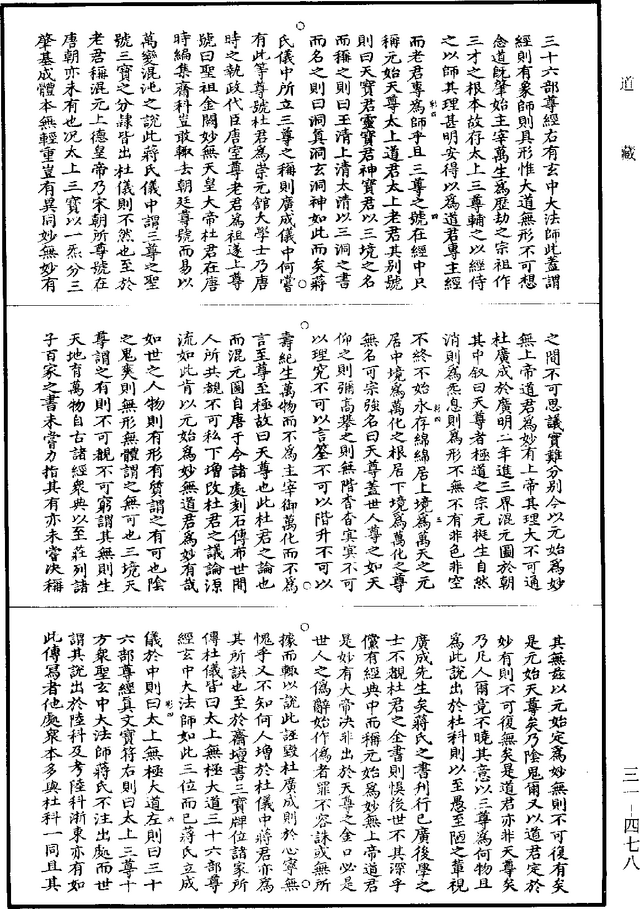 道藏
三一—四七八
三十六部尊經右有玄中大法師此蓋謂
經則有象師則具形惟大道無形不可想
念道既肇始主宰萬生為歷劫之宗祖作
三才之根本故存太上三尊輔之以經侍
之以師其理甚明安得以為道君專主經
而老君專為師乎且三尊之號在經中只
稱元始天尊太上道君太上老君其別號
則曰天寶君靈寶君神寶君以三境之名
而稱之則曰玉清上清太清以三洞之書
而名之則曰洞真洞玄洞神如此而矣蔣
氏儀中所立三尊之稱則廣成儀中何嘗
有此等尊號杜君為崇元館大學士乃唐
時之執政代臣唐室尊老君為祖遂上尊
號曰聖祖金闕妙無天皇大帝杜君在唐
時編集齋科豈敢輙去朝廷尊號而易以
萬變混沌之說此蔣氏儀中謂三尊之聖
號三寶之分隸皆出杜儀則不然也至於
老君稱混元上德皇帝乃宋朝所尊號在
唐朝亦未有也况太上三寶以一炁分三
肇基成體本無輕重豈有異同妙無妙有
之間不可思議實難分別今以元始為妙
無上帝道君為妙有上帝其理大不可通
杜廣成於廣明二年進三界混元圖於朝
其中叙曰天尊者極道之宗元挺生自然
消則為炁息則為形不無不有非色非空
不終不始永存綿綿居上境為萬天之元
居中境為萬化之根居下境為萬化之尊
無名可宗強名曰天尊蓋世人尊之如天
仰之則彌高攀之則無階杳杳冥冥不可
以理究不可以言筌不可以階升不可以
壽紀生萬物而不為主宰御萬化而不為
言至尊至極故曰天尊也此杜君之論也
而混元圖自唐于今諸處刻石傳布世間
人所共覩不可私下增改杜君之議論源
流如此肯以元始為妙無道君為妙有哉
如世之人物則有形有質謂之有可也陰
之鬼爽則無形無體謂之無可也三境天
尊謂之有則不可覩不可窮謂其無則生
天地育萬物自古諸經衆典以至莊列諸
子百家之書未嘗力指其有亦未嘗決稱
其無茲以元始定為妙無則不可復有矣
是元始天尊矣乃陰鬼爾又以道君定於
妙有則不可復無矣是道君亦非天尊矣
乃凡人爾竟不曉其意以三尊為何物且
為此說出於杜科則以至愚至陋之輩視
廣成先生矣蔣氏之書刊行已廣後學之
士不覩杜君之全書則悞後世不其深乎
儻有經典中而稱元始為妙無上帝道君
是妙有大帝決非出於天尊之金口必是
世人之偽辭始作偽者罪不容誅或無所
據而輙以說此誣毀杜廣成則於心寧無
愧乎又不知何人增於杜儀中蔣君亦為
其所誤也至於齋壇書三寶牌位諸家所
傳杜儀皆曰太上無極大道三十六部尊
經玄中大法師如此三位而已蔣氏立成
儀於中則曰太上無極大道左則曰三十
六部尊經真文寶符右則曰太上三尊十
方衆聖玄中大法師蔣氏不注出處而世
謂其說出於陸科及考陸科浙東亦有如
此傳寫者他處衆本多與杜科一同且其